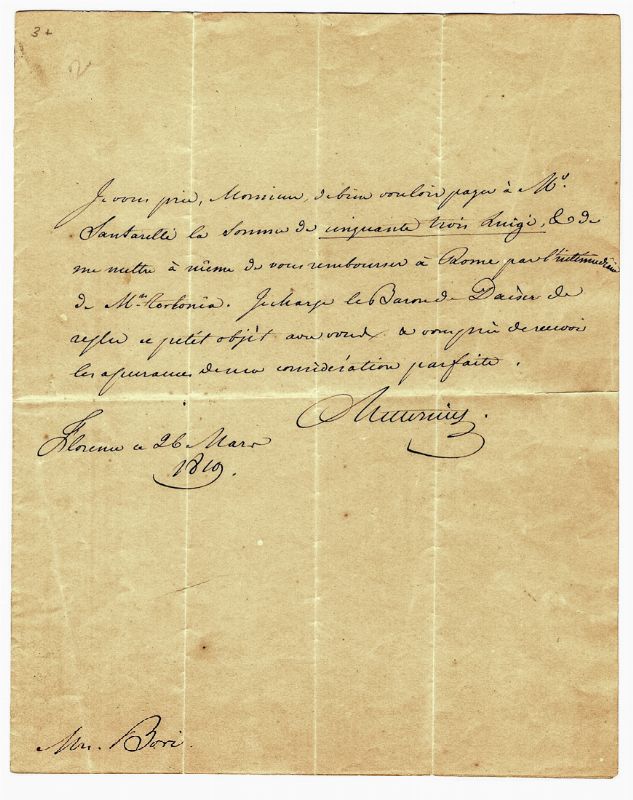 3
2
Je vous prie, Monsieur, de bien vouloir payer à Mr.
Santarelli la Somme de cinquante trois Luigi, & de
me mettre à même de vous rembourser à Rome par l'intermédiaire
de Mr. Torlonia. Je charge le Baron de Daiser de
regler ce petit objèt avec vous & vous prie de recevoir
les assurances de ma considération parfaite.
Metternich.
Florence ce 26 Mars
1819.
Mr. Bori.